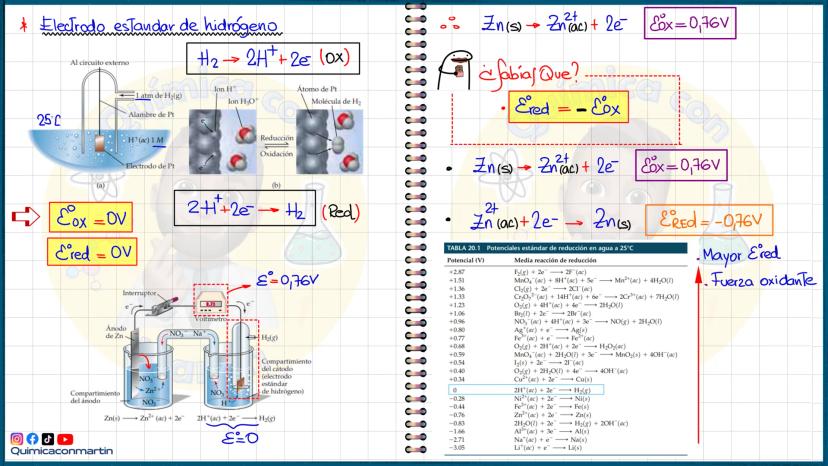 * Electrodo estandar de hidrógeno
H₂ → 2H⁺ + 2e⁻ (OX)
Al circuito externo
1 atm de H₂(g)
Alambre de Pt
25°C
H⁺(ac) 1 M
Electrodo de Pt
(a)
Ion H⁺
Ion H₃O⁺
Átomo de Pt
Molécula de H₂
Reducción
Oxidación
(b)
ℰ°ox = 0V
2H⁺ + 2e⁻ → H₂ (Red)
ℰ°red = 0V
ℰ° = 0,76V
Interruptor
0.76
Voltímetro
e⁻
e⁻
Ánodo
de Zn
NO₃⁻ Na⁺
H₂(g)
Compartimento
del cátodo
(electrodo
estándar
de hidrógeno)
NO₃⁻
Zn²⁺
NO₃⁻
NO₃⁻
H⁺
Compartimento
del ánodo
Zn(s) → Zn²⁺(ac) + 2e⁻
2H⁺(ac) + 2e⁻ → H₂(g)
ℰ°=0
Quimicaconmartin
∴ Zn(s) → Zn²⁺(ac) + 2e⁻ ℰ°ox = 0,76V
¿Sabías Que?
• ℰ°red = - ℰ°ox
• Zn(s) → Zn²⁺(ac) + 2e⁻ ℰ°ox = 0,76V
• Zn²⁺(ac) + 2e⁻ → Zn(s) ℰ°RED = -0,76V
TABLA 20.1 Potenciales estándar de reducción en agua a 25°C
Potencial (V) Media reacción de reducción
+2.87 F₂(g) + 2e⁻ → 2F⁻(ac)
+1.51 MnO₄⁻(ac) + 8H⁺(ac) + 5e⁻ → Mn²⁺(ac) + 4H₂O(l)
+1.36 Cl₂(g) + 2e⁻ → 2Cl⁻(ac)
+1.33 Cr₂O₇²⁻(ac) + 14H⁺(ac) + 6e⁻ → 2Cr³⁺(ac) + 7H₂O(l)
+1.23 O₂(g) + 4H⁺(ac) + 4e⁻ → 2H₂O(l)
+1.06 Br₂(l) + 2e⁻ → 2Br⁻(ac)
+0.96 NO₃⁻(ac) + 4H⁺(ac) + 3e⁻ → NO(g) + 2H₂O(l)
+0.80 Ag⁺(ac) + e⁻ → Ag(s)
+0.77 Fe³⁺(ac) + e⁻ → Fe²⁺(ac)
+0.68 O₂(g) + 2H⁺(ac) + 2e⁻ → H₂O₂(ac)
+0.59 MnO₄⁻(ac) + 2H₂O(l) + 3e⁻ → MnO₂(s) + 4OH⁻(ac)
+0.54 I₂(s) + 2e⁻ → 2I⁻(ac)
+0.40 O₂(g) + 2H₂O(l) + 4e⁻ → 4OH⁻(ac)
+0.34 Cu²⁺(ac) + 2e⁻ → Cu(s)
0 2H⁺(ac) + 2e⁻ → H₂(g)
−0.28 Ni²⁺(ac) + 2e⁻ → Ni(s)
−0.44 Fe²⁺(ac) + 2e⁻ → Fe(s)
−0.76 Zn²⁺(ac) + 2e⁻ → Zn(s)
−0.83 2H₂O(l) + 2e⁻ → H₂(g) + 2OH⁻(ac)
−1.66 Al³⁺(ac) + 3e⁻ → Al(s)
−2.71 Na⁺(ac) + e⁻ → Na(s)
−3.05 Li⁺(ac) + e⁻ → Li(s)
. Mayor ℰ°red
. Fuerza oxidante